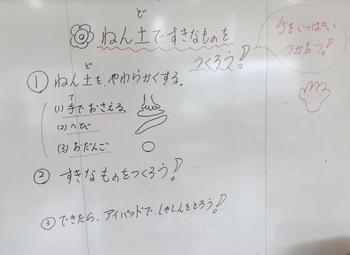 ねん土(ど)ですきなものを
つくろう!
手をいっぱい
つかおう!
① ねん土(ど)を、やわらかくする。
(1) 手(て)でおさえる。
(2) へび
(3) おだんご
② すきなものをつくろう!
③ できたら、アイパッドで、しゃしんをとろう!